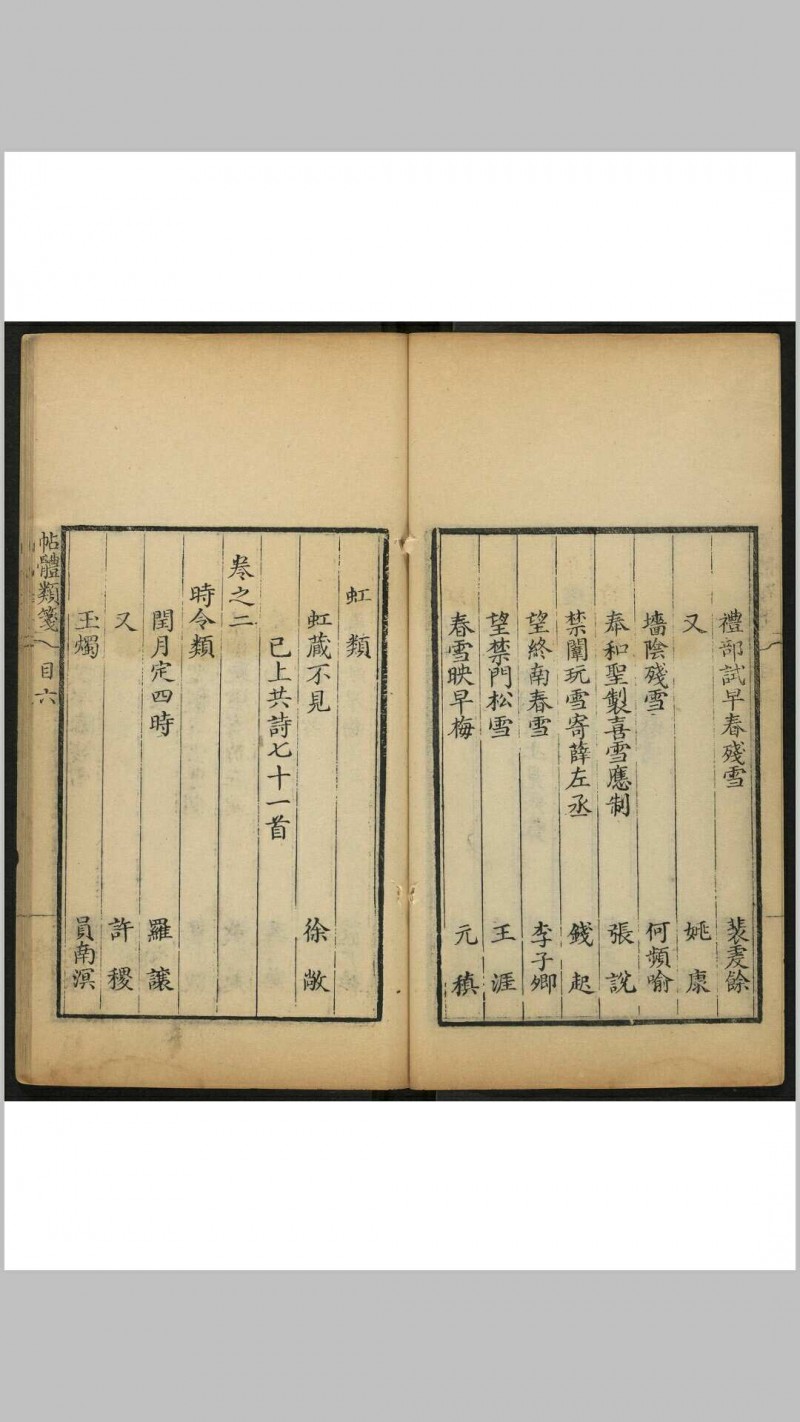 禮部試早春殘雪 裴虔餘
又 姚康
墻陰殘雪 何頻喻
奉和聖製喜雪應制 張說
禁闈玩雪寄薛左丞 錢起
望終南春雪 李子卿
望禁門松雪 王涯
春雪映早梅 元稹
虹類
虹蔵不見 徐敞
已上共詩七十一首
卷之二
時令類
閏月定四時 羅讓
又 許稷
玉燭 員南溟
帖體類箋 目六